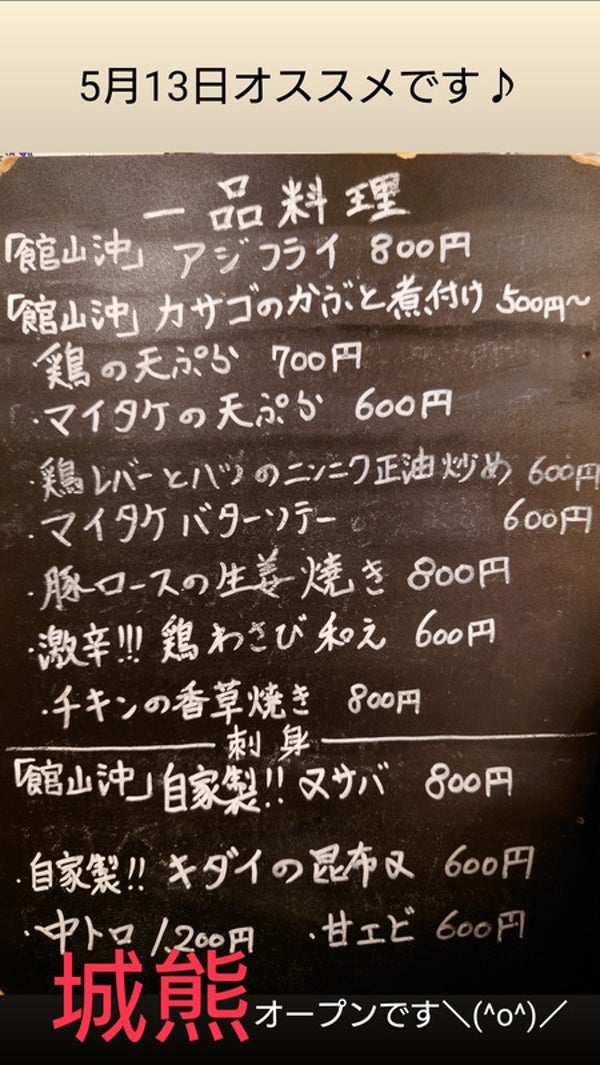 5月13日オススメです♪
一品料理
「館山沖」 アジフライ 800円
「館山沖」 カサゴのかぶと煮付け 500円～
鶏の天ぷら 700円
・マイタケの天ぷら 600円
・鶏レバーとハツのニンニク正油炒め 600円
・マイタケバターソテー 600円
・豚ロースの生姜焼き 800円
・激辛!!! 鶏わさび和え 600円
・チキンの香草焼き 800円
刺身
「館山沖」自家製!! 〆サバ 800円
・自家製!! キダイの昆布〆 600円
・中トロ 1,200円 ・甘エビ 600円
城熊オープンです＼(^o^)／